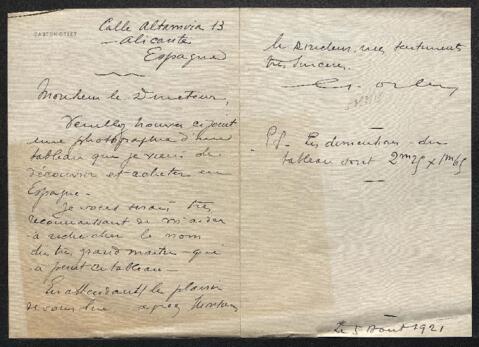 GASTON ORLEY
Calle Altamira 13
Alicante
Espagne
Monsieur le Directeur,
Veuillez trouver ci joint
une photographie d'un
tableau que je viens de
découvrir et acheter en
Espagne.
Je vous serais très
reconnaissant de m'aider
à rechercher le nom
du très grand maître qui
a peint ce tableau
En attendant le plaisir
de vous lire agréez Monsieur
le Directeur, mes sentiments
très sincères.
G. Orley
P.S. Les dimensions du
tableau sont 2m25 x 1m65
Le 5 Août 1921